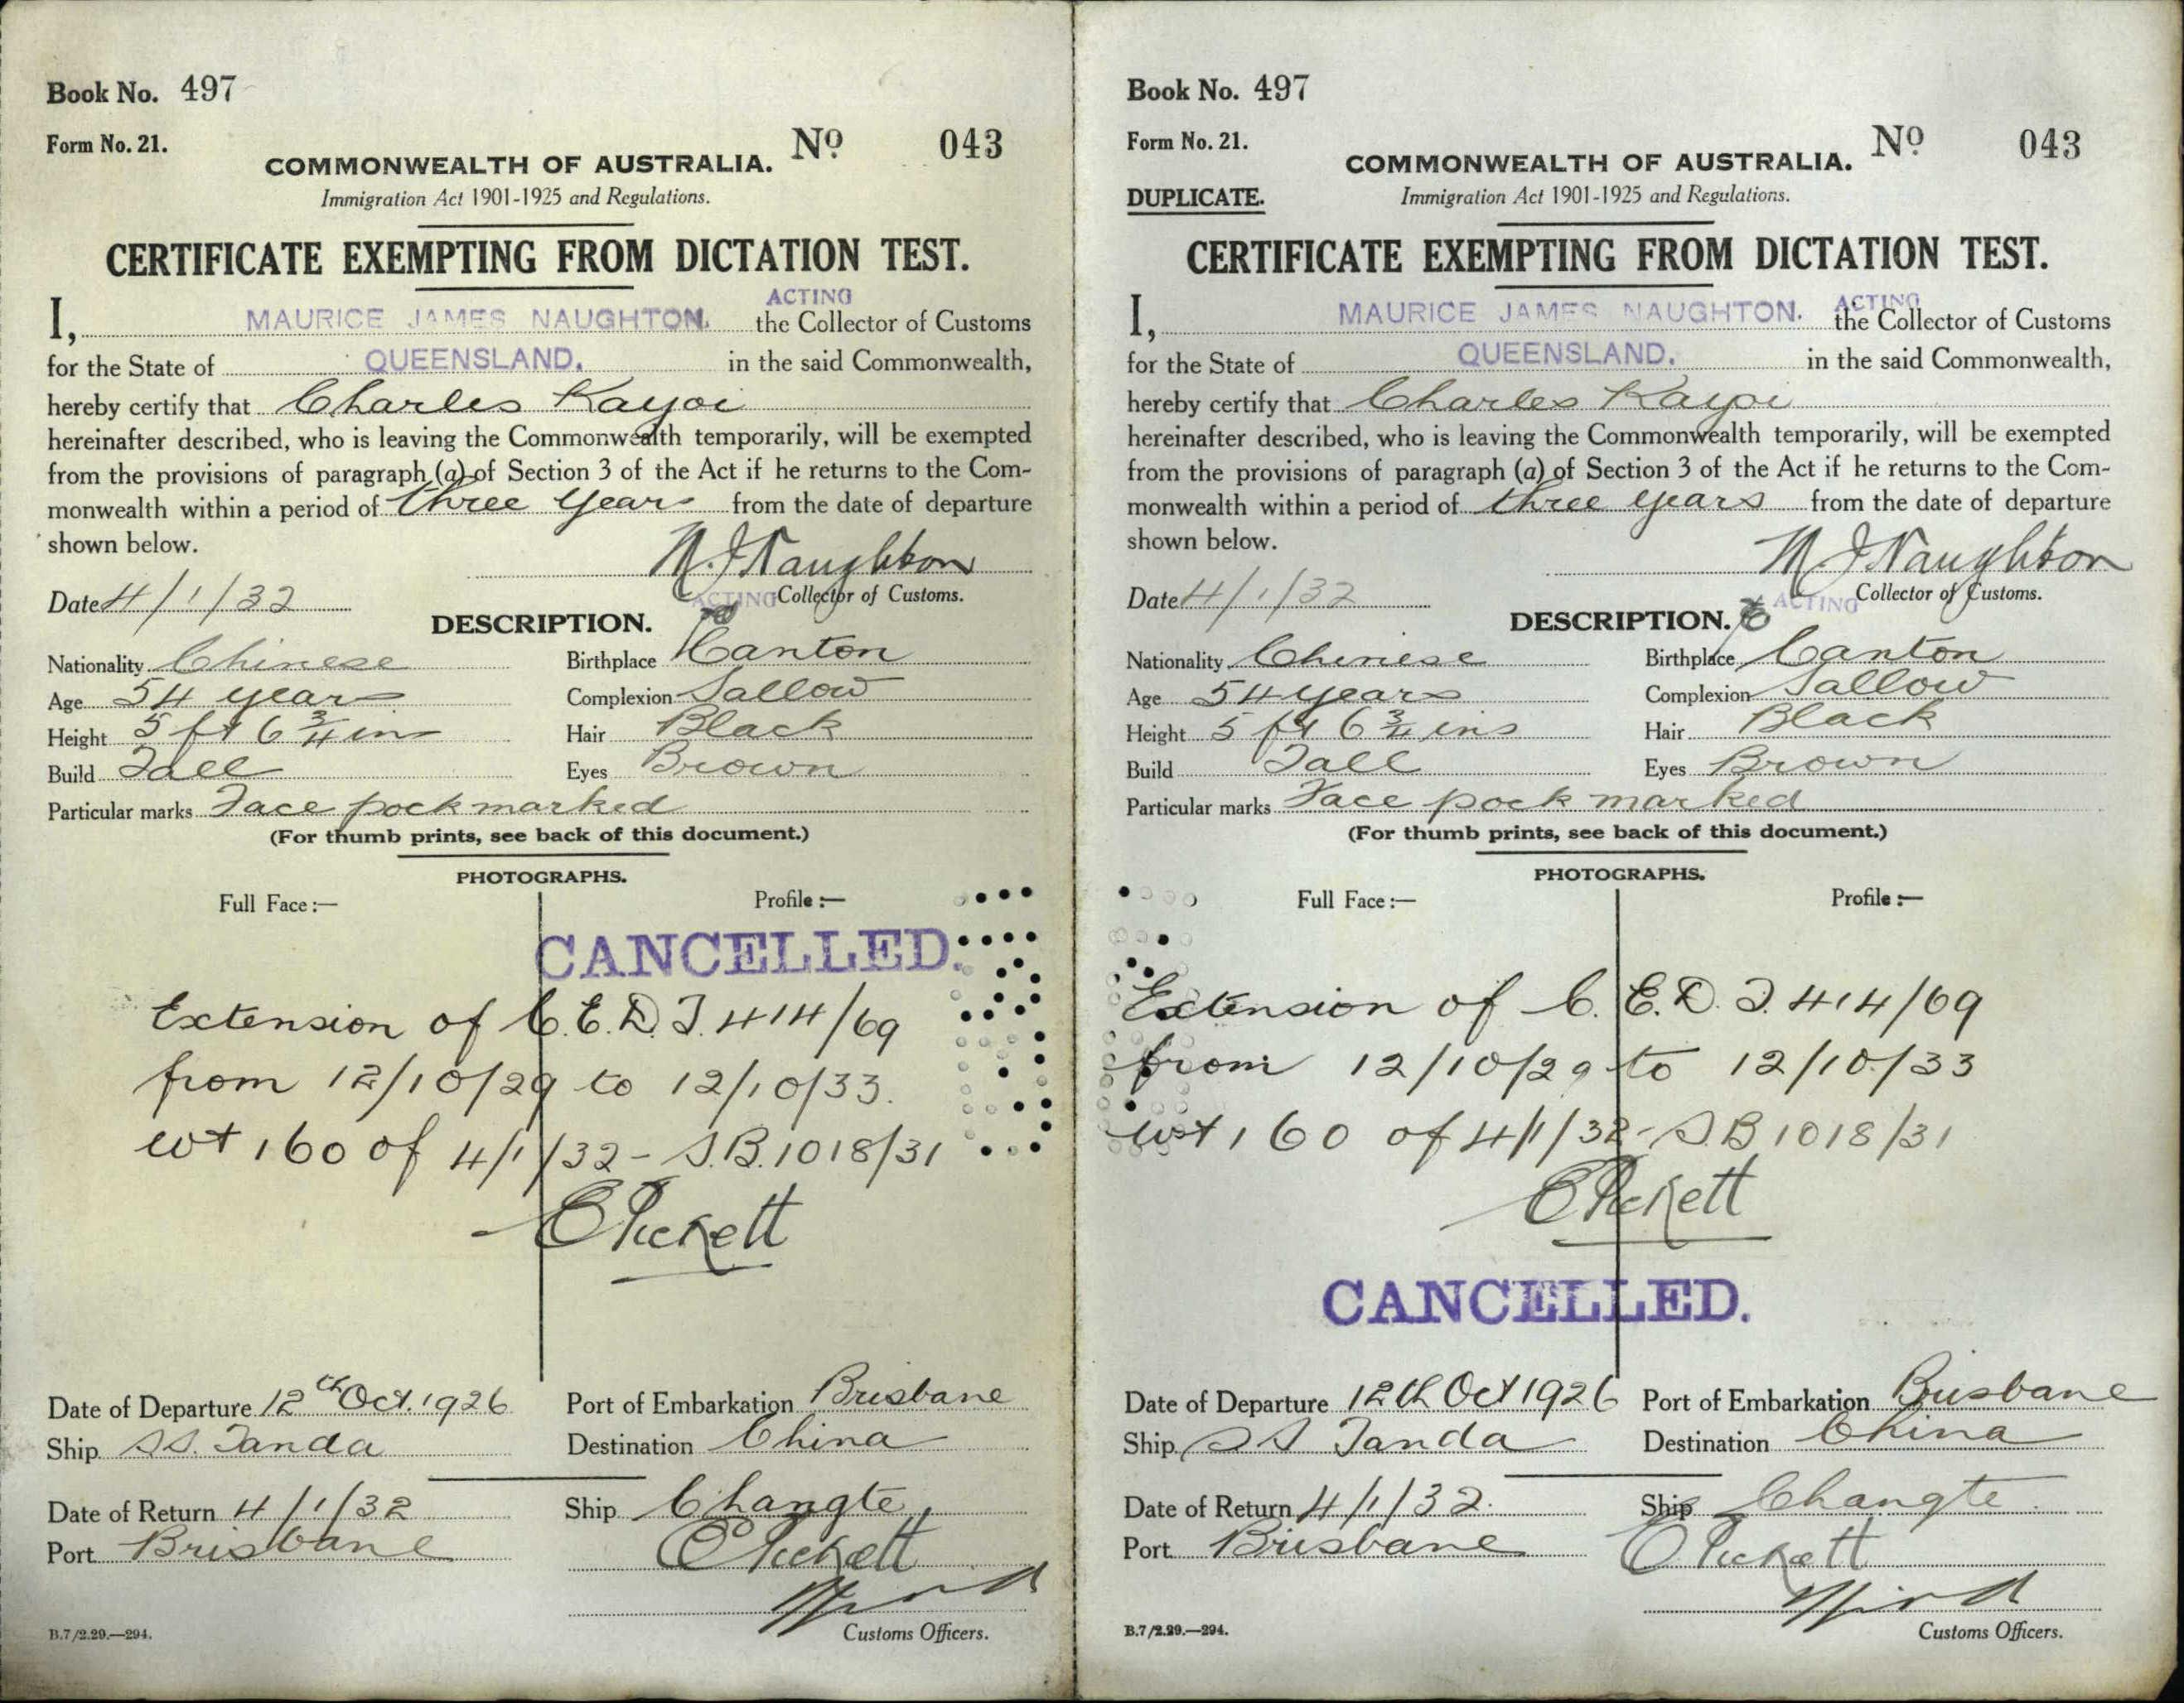 Book No. 497
Form No. 21.
COMMONWEALTH OF AUSTRALIA. No 043
Immigration Act 1901-1925 and Regulations.
CERTIFICATE EXEMPTING FROM DICTATION TEST.
ACTING
I, MAURICE JAMES NAUGHTON. the Collector of Customs
for the State of QUEENSLAND. in the said Commonwealth,
hereby certify that Charles Kayoi
hereinafter described, who is leaving the Commonwealth temporarily, will be exempted
from the provisions of paragraph (a) of Section 3 of the Act if he returns to the Com-
monwealth within a period of three years from the date of departure
shown below.
M. J Naughton
Date 4/1/32 ACTING Collector of Customs.
DESCRIPTION.
Nationality Chinese Birthplace Canton
Age 54 years Complexion Sallow
Height 5 ft 6 3/4 ins Hair Black
Build Tall Eyes Brown
Particular marks Face pock marked
(For thumb prints, see back of this document.)
PHOTOGRAPHS.
Full Face:— Profile:—
CANCELLED.
Extension of C.E.D.T. 414/69
from 12/10/29 to 12/10/33.
wt 160 of 4/1/32 - S.B. 1018/31
C Pickett
Date of Departure 12th Oct. 1926 Port of Embarkation Brisbane
Ship SS. Tanda Destination China
Date of Return 4/1/32 Ship Changte
Port Brisbane C Pickett
B.7/2.29.—294. Customs Officers.
Book No. 497
Form No. 21.
COMMONWEALTH OF AUSTRALIA. No 043
DUPLICATE. Immigration Act 1901-1925 and Regulations.
CERTIFICATE EXEMPTING FROM DICTATION TEST.
ACTING
I, MAURICE JAMES NAUGHTON. the Collector of Customs
for the State of QUEENSLAND. in the said Commonwealth,
hereby certify that Charles Kayoi
hereinafter described, who is leaving the Commonwealth temporarily, will be exempted
from the provisions of paragraph (a) of Section 3 of the Act if he returns to the Com-
monwealth within a period of three years from the date of departure
shown below.
M J Naughton
Date 4/1/32 ACTING Collector of Customs.
DESCRIPTION.
Nationality Chinese Birthplace Canton
Age 54 years Complexion Sallow
Height 5 ft 6 3/4 ins Hair Black
Build Tall Eyes Brown
Particular marks Face pock marked
(For thumb prints, see back of this document.)
PHOTOGRAPHS.
Full Face:— Profile:—
Extension of C.E.D.T. 414/69
from 12/10/29 to 12/10/33
wt 160 of 4/1/32 - S.B 1018/31
C Pickett
CANCELLED.
Date of Departure 12th Oct 1926 Port of Embarkation Brisbane
Ship SS Tanda Destination China
Date of Return 4/1/32. Ship Changte
Port Brisbane C Pickett
B.7/2.29.—294. Customs Officers.